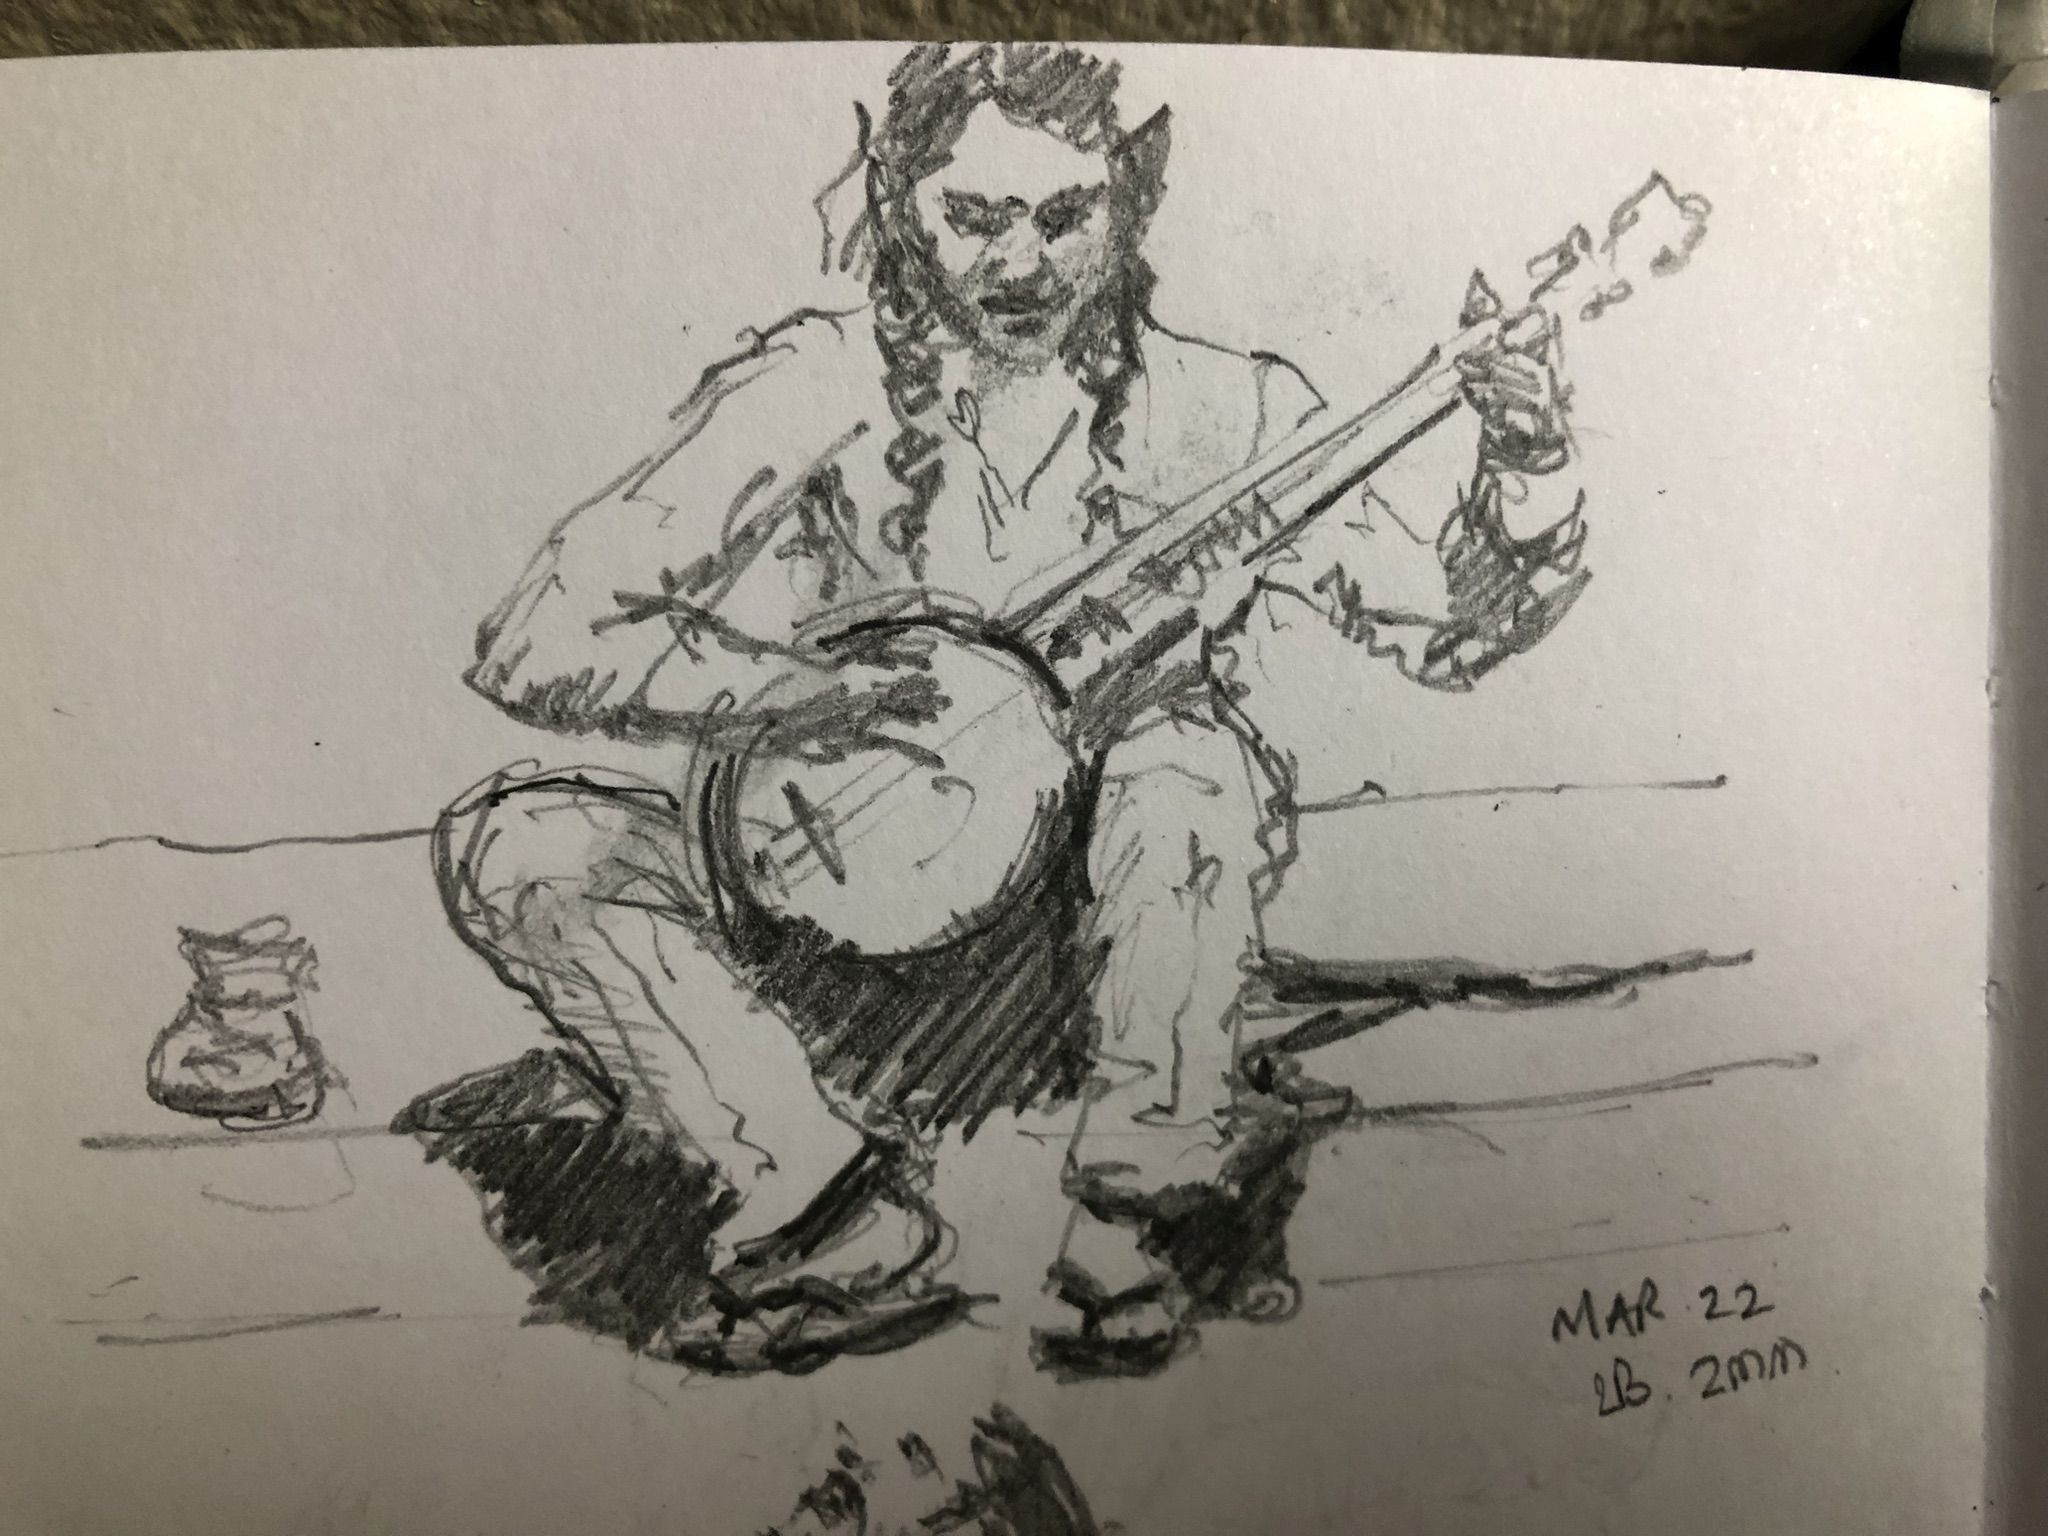 MAR. 22
2B. 2mm.